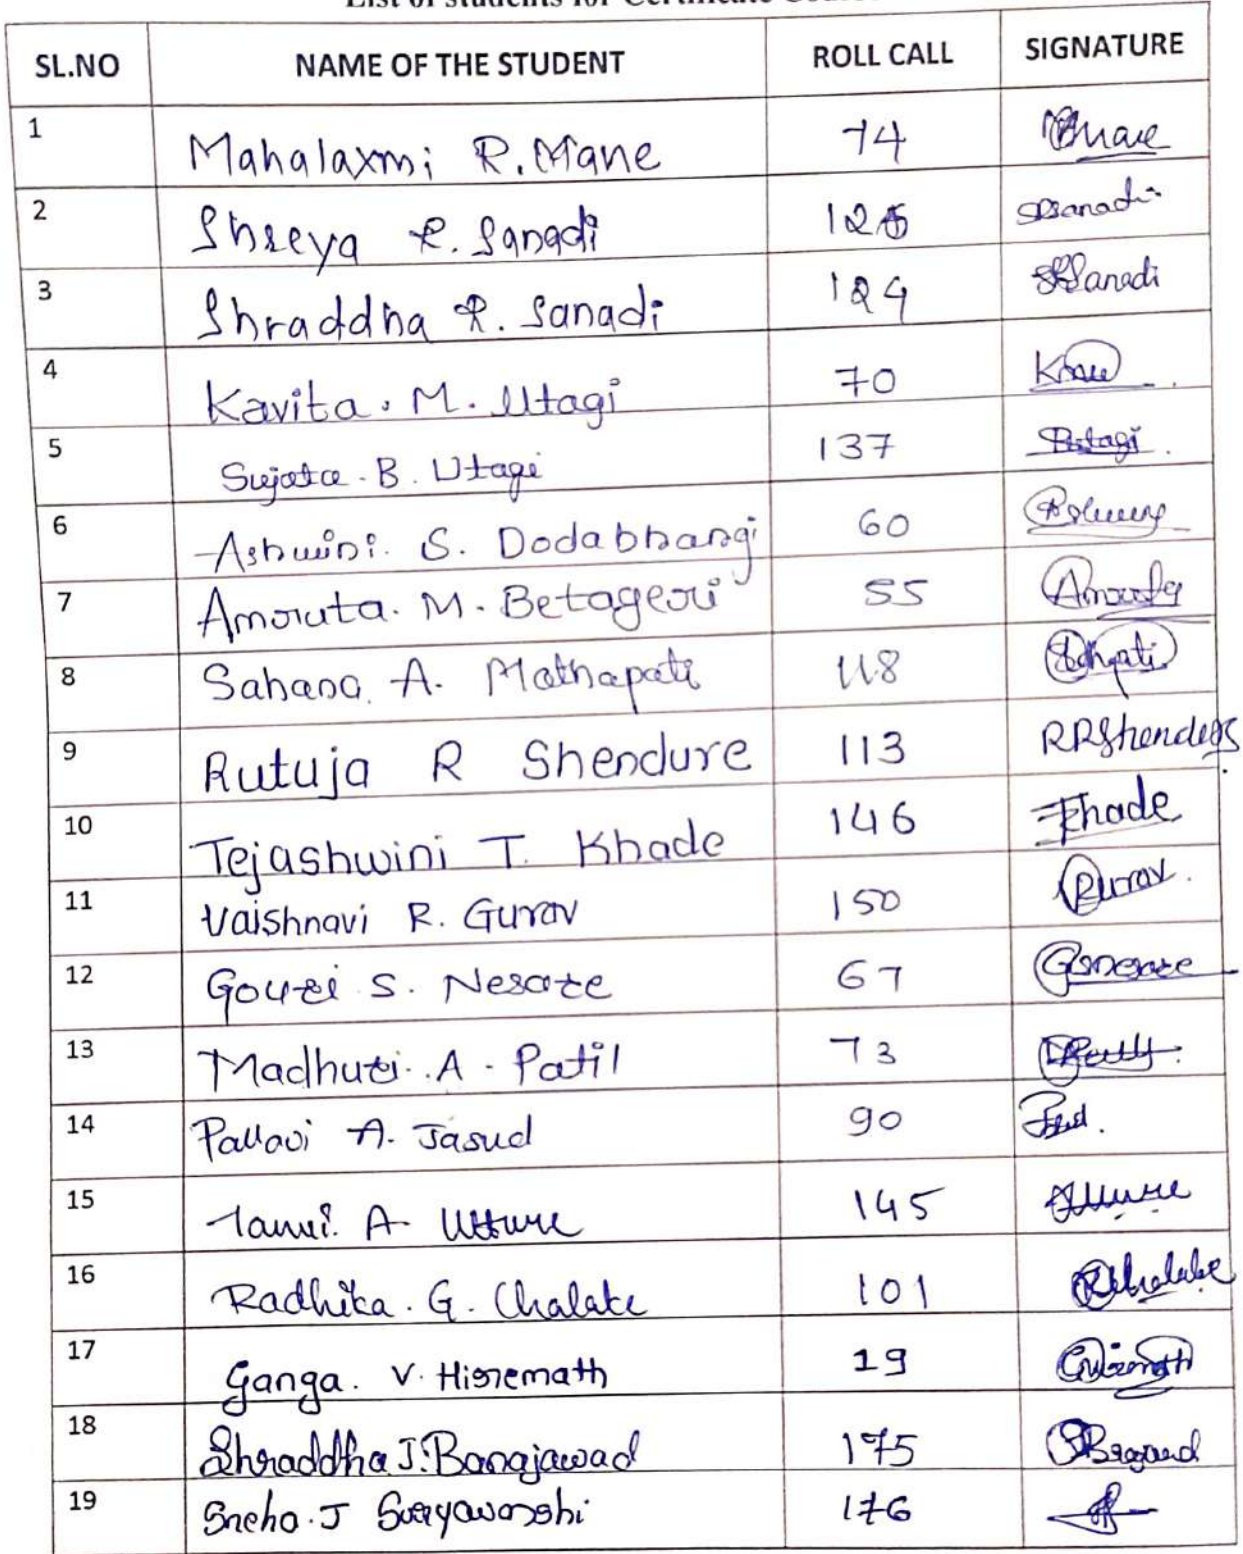 List of students for Certificate Course
SL.NO NAME OF THE STUDENT ROLL CALL SIGNATURE
1 Mahalaxmi R. Mane 74
2 Shreya R. Sanadi 125 Sanadi
3 Shraddha R. Sanadi 124 SRSanadi
4 Kavita. M. Utagi 70
5 Sujata. B. Utagi 137 Butagi.
6 Ashwini. S. Dodabhangi 60
7 Amruta. M. Betageri 55 Amruta
8 Sahana. A. Mathapati 118
9 Rutuja R Shendure 113 RRShendure
10 Tejashwini T. Khade 146 Khade
11 Vaishnavi R. Gurav 150 Gurav.
12 Gouri S. Nesare 67 GSnesare
13 Madhuri. A. Patil 73
14 Pallavi A. Jasud 90
15 Tanvi. A. Utture 145
16 Radhika. G. Chalake 101 RChalake
17 Ganga. V. Hiremath 19
18 Shraddha J. Banajawad 175
19 Sneha. J Suryawanshi 176